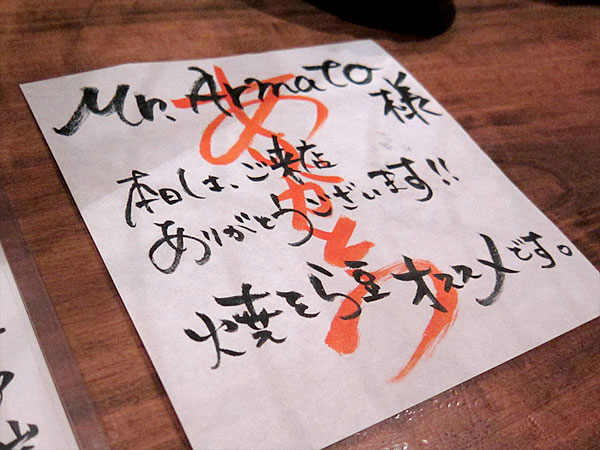 Mr. Armato様
本日は、ご来店
ありがとうございます!!
焼そら豆オススメです。
ありがとう